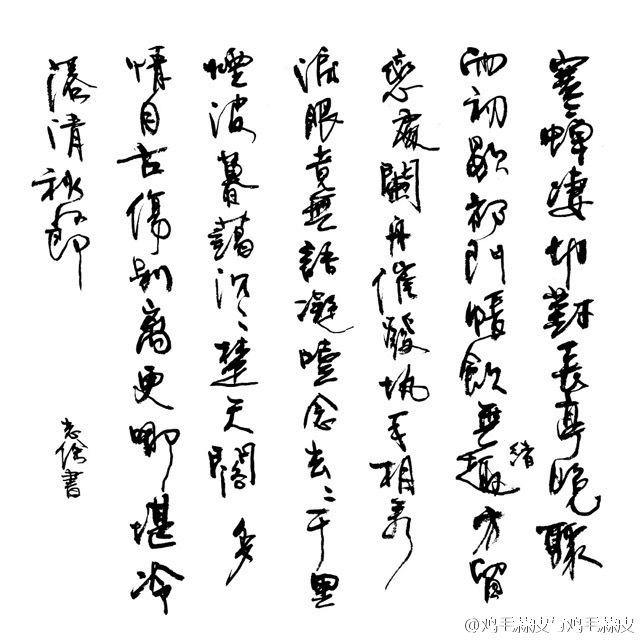 寒蟬凄切對長亭晚驟
雨初歇都門帳飲無趣緒方留
戀處闌舟催發執手相看
淚眼竟無語凝噎念去々千里
煙波暮靄沉々楚天闊多
情自古傷別離更哪堪冷
落清秋節
書
@鸡毛蒜皮与鸡毛蒜皮